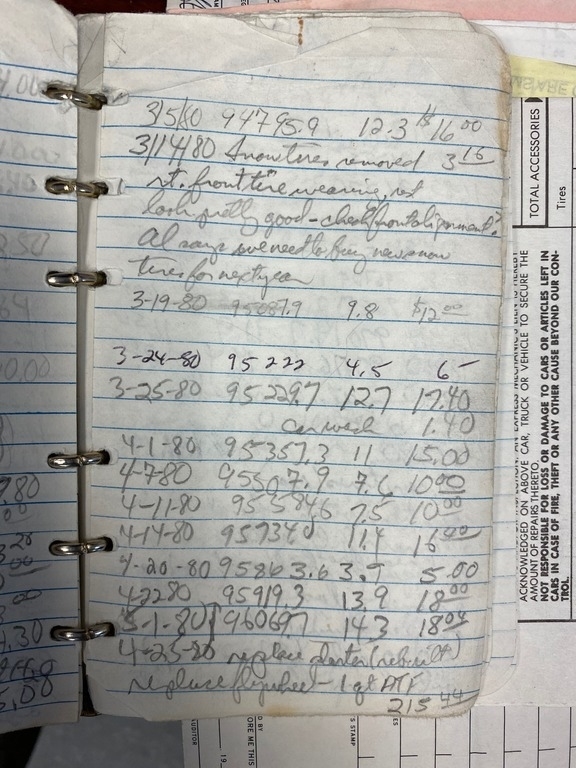 3/5/80 94795.9 12.3 $16 00
3/14/80 Snow tires removed 3 16
rt. front tire wearing, rest
look pretty good - check front alignment?
Al says we need to buy new snow
tires for next year
3-19-80 95087.9 9.8 $12 00
3-24-80 95222 4.5 6 -
3-25-80 95229.7 12.7 17.40
car wash 1.40
4-1-80 95357.3 11 15.00
4-7-80 95507.9 7.6 10 00
4-11-80 95584.6 7.5 10 00
4-14-80 95734.0 11.4 16 00
4-20-80 95863.6 3.9 5.00
4-22-80 95919.3 13.9 18 00
5-1-80 96069.7 14.3 18 04
4-25-80 replace starter (rebuilt)
replace flywheel - 1 qt ATF
215 44
TOTAL ACCESSORIES
Tires
ACKNOWLEDGED ON ABOVE CAR, TRUCK OR VEHICLE TO SECURE THE
AMOUNT OF REPAIRS THERETO.
NOT RESPONSIBLE FOR LOSS OR DAMAGE TO CARS OR ARTICLES LEFT IN
CARS IN CASE OF FIRE, THEFT OR ANY OTHER CAUSE BEYOND OUR CON-
TROL.